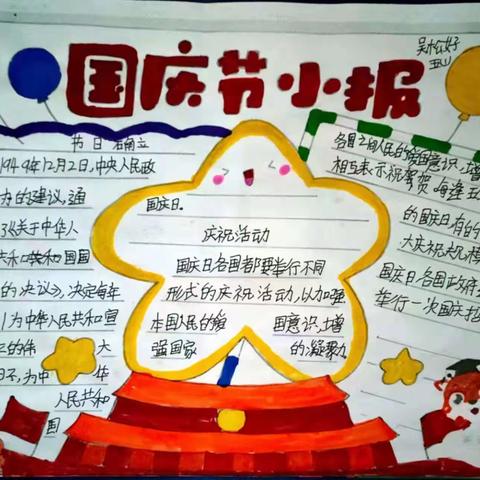 国庆节小报
节日确立
1949年12月2日,中央人民政
的建议,通
关于中华人
共和共和国国
的《决议》,决定每年
为中华人民共和宣
的伟大
日子,为中华
人民共和
国
国庆日。
庆祝活动
国庆日各国都要举行不同
形式的庆祝活动,以加强
本国人民的爱国意识,增
强国家的凝聚力
各国之间人民的爱国意识,增
相互表示祝贺 每逢五
的国庆日有的
大庆祝规模
国庆日各国政府
举行一次国庆招